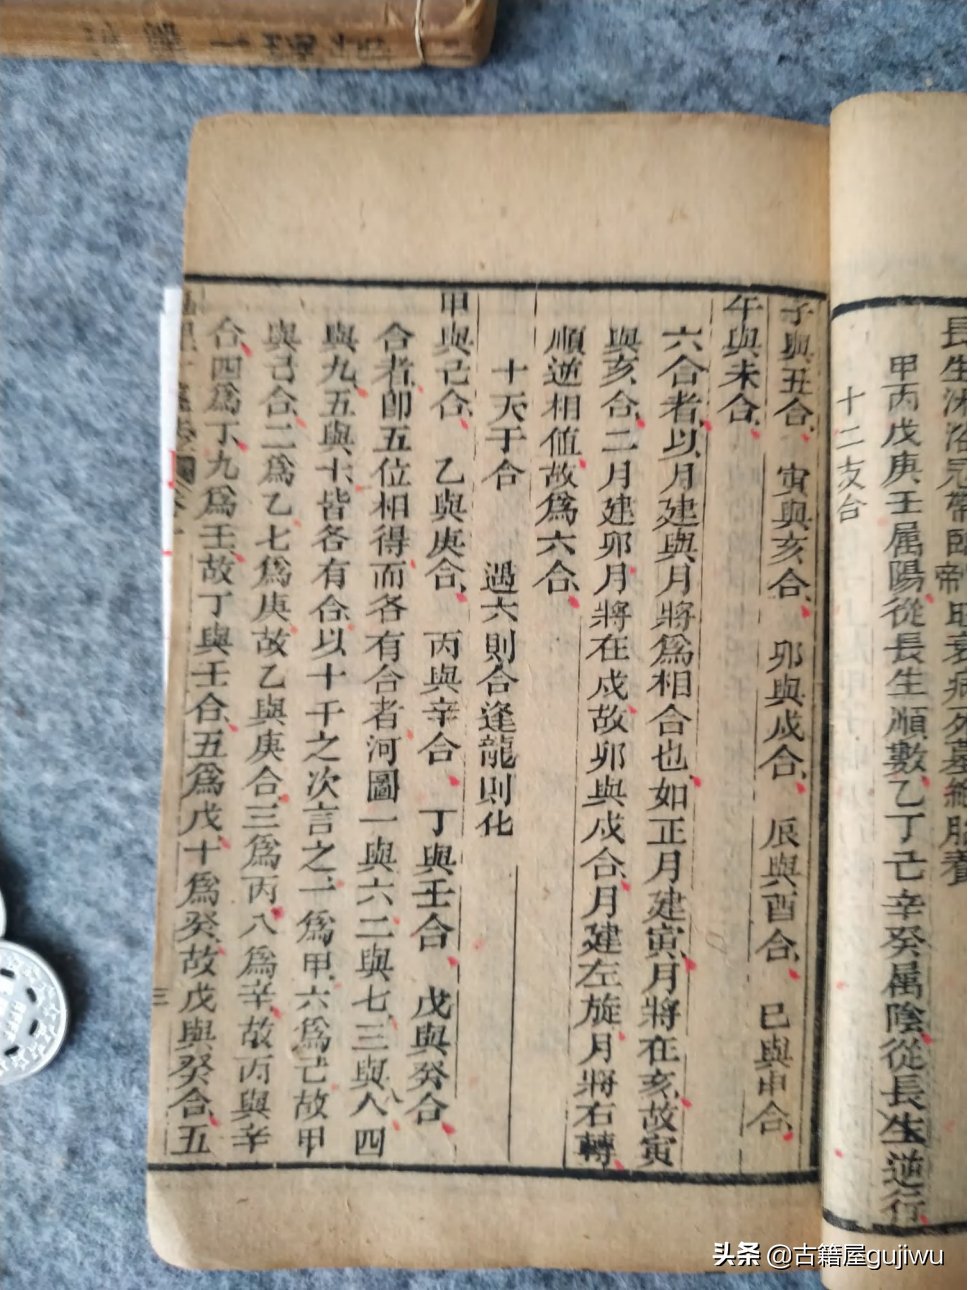 長生沐浴冠帶臨帝旺衰病死墓絕胎養
甲丙戊庚壬属陽從長生順數乙丁己辛癸属陰從長生逆行
十二支合
子與丑合 寅與亥合 卯與戌合 辰與酉合 巳與申合
午與未合
六合者以月建與月將爲相合也如正月建寅月將在亥故寅
與亥合二月建卯月將在戌故卯與戌合月建左旋月將右轉
順逆相值故爲六合
十天干合 遇六則合逢龍則化
甲與己合 乙與庚合 丙與辛合 丁與壬合 戊與癸合
合者卽五位相得而各有合者河圖一與六二與七三與八四
與九五與十皆各有合以十干之次言之一爲甲六爲己故甲
與己合二爲乙七爲庚故乙與庚合三爲丙八爲辛故丙與辛
合四爲丁九爲壬故丁與壬合五爲戊十爲癸故戊與癸合五
三
头条 @古籍屋gujiwu